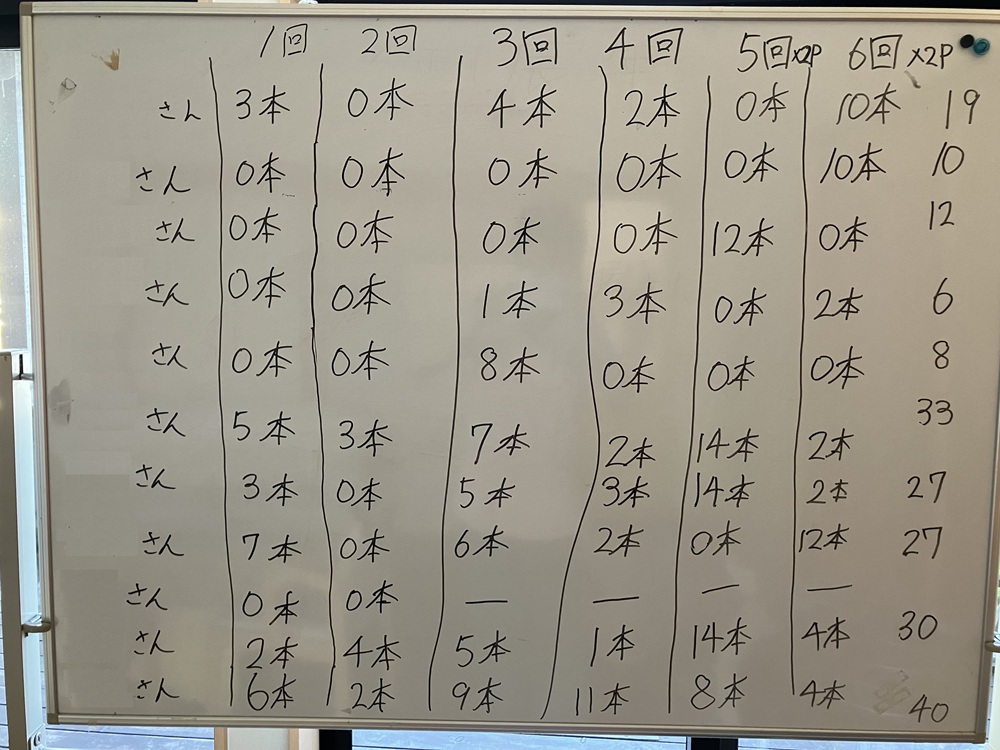 1回 2回 3回 4回 5回x2P 6回x2P
さん 3本 0本 4本 2本 0本 10本 19
さん 0本 0本 0本 0本 0本 10本 10
さん 0本 0本 0本 0本 12本 0本 12
さん 0本 0本 1本 3本 0本 2本 6
さん 0本 0本 8本 0本 0本 0本 8
さん 5本 3本 7本 2本 14本 2本 33
さん 3本 0本 5本 3本 14本 2本 27
さん 7本 0本 6本 2本 0本 12本 27
さん 0本 0本 — — — —
さん 2本 4本 5本 1本 14本 4本 30
さん 6本 2本 9本 11本 8本 4本 40